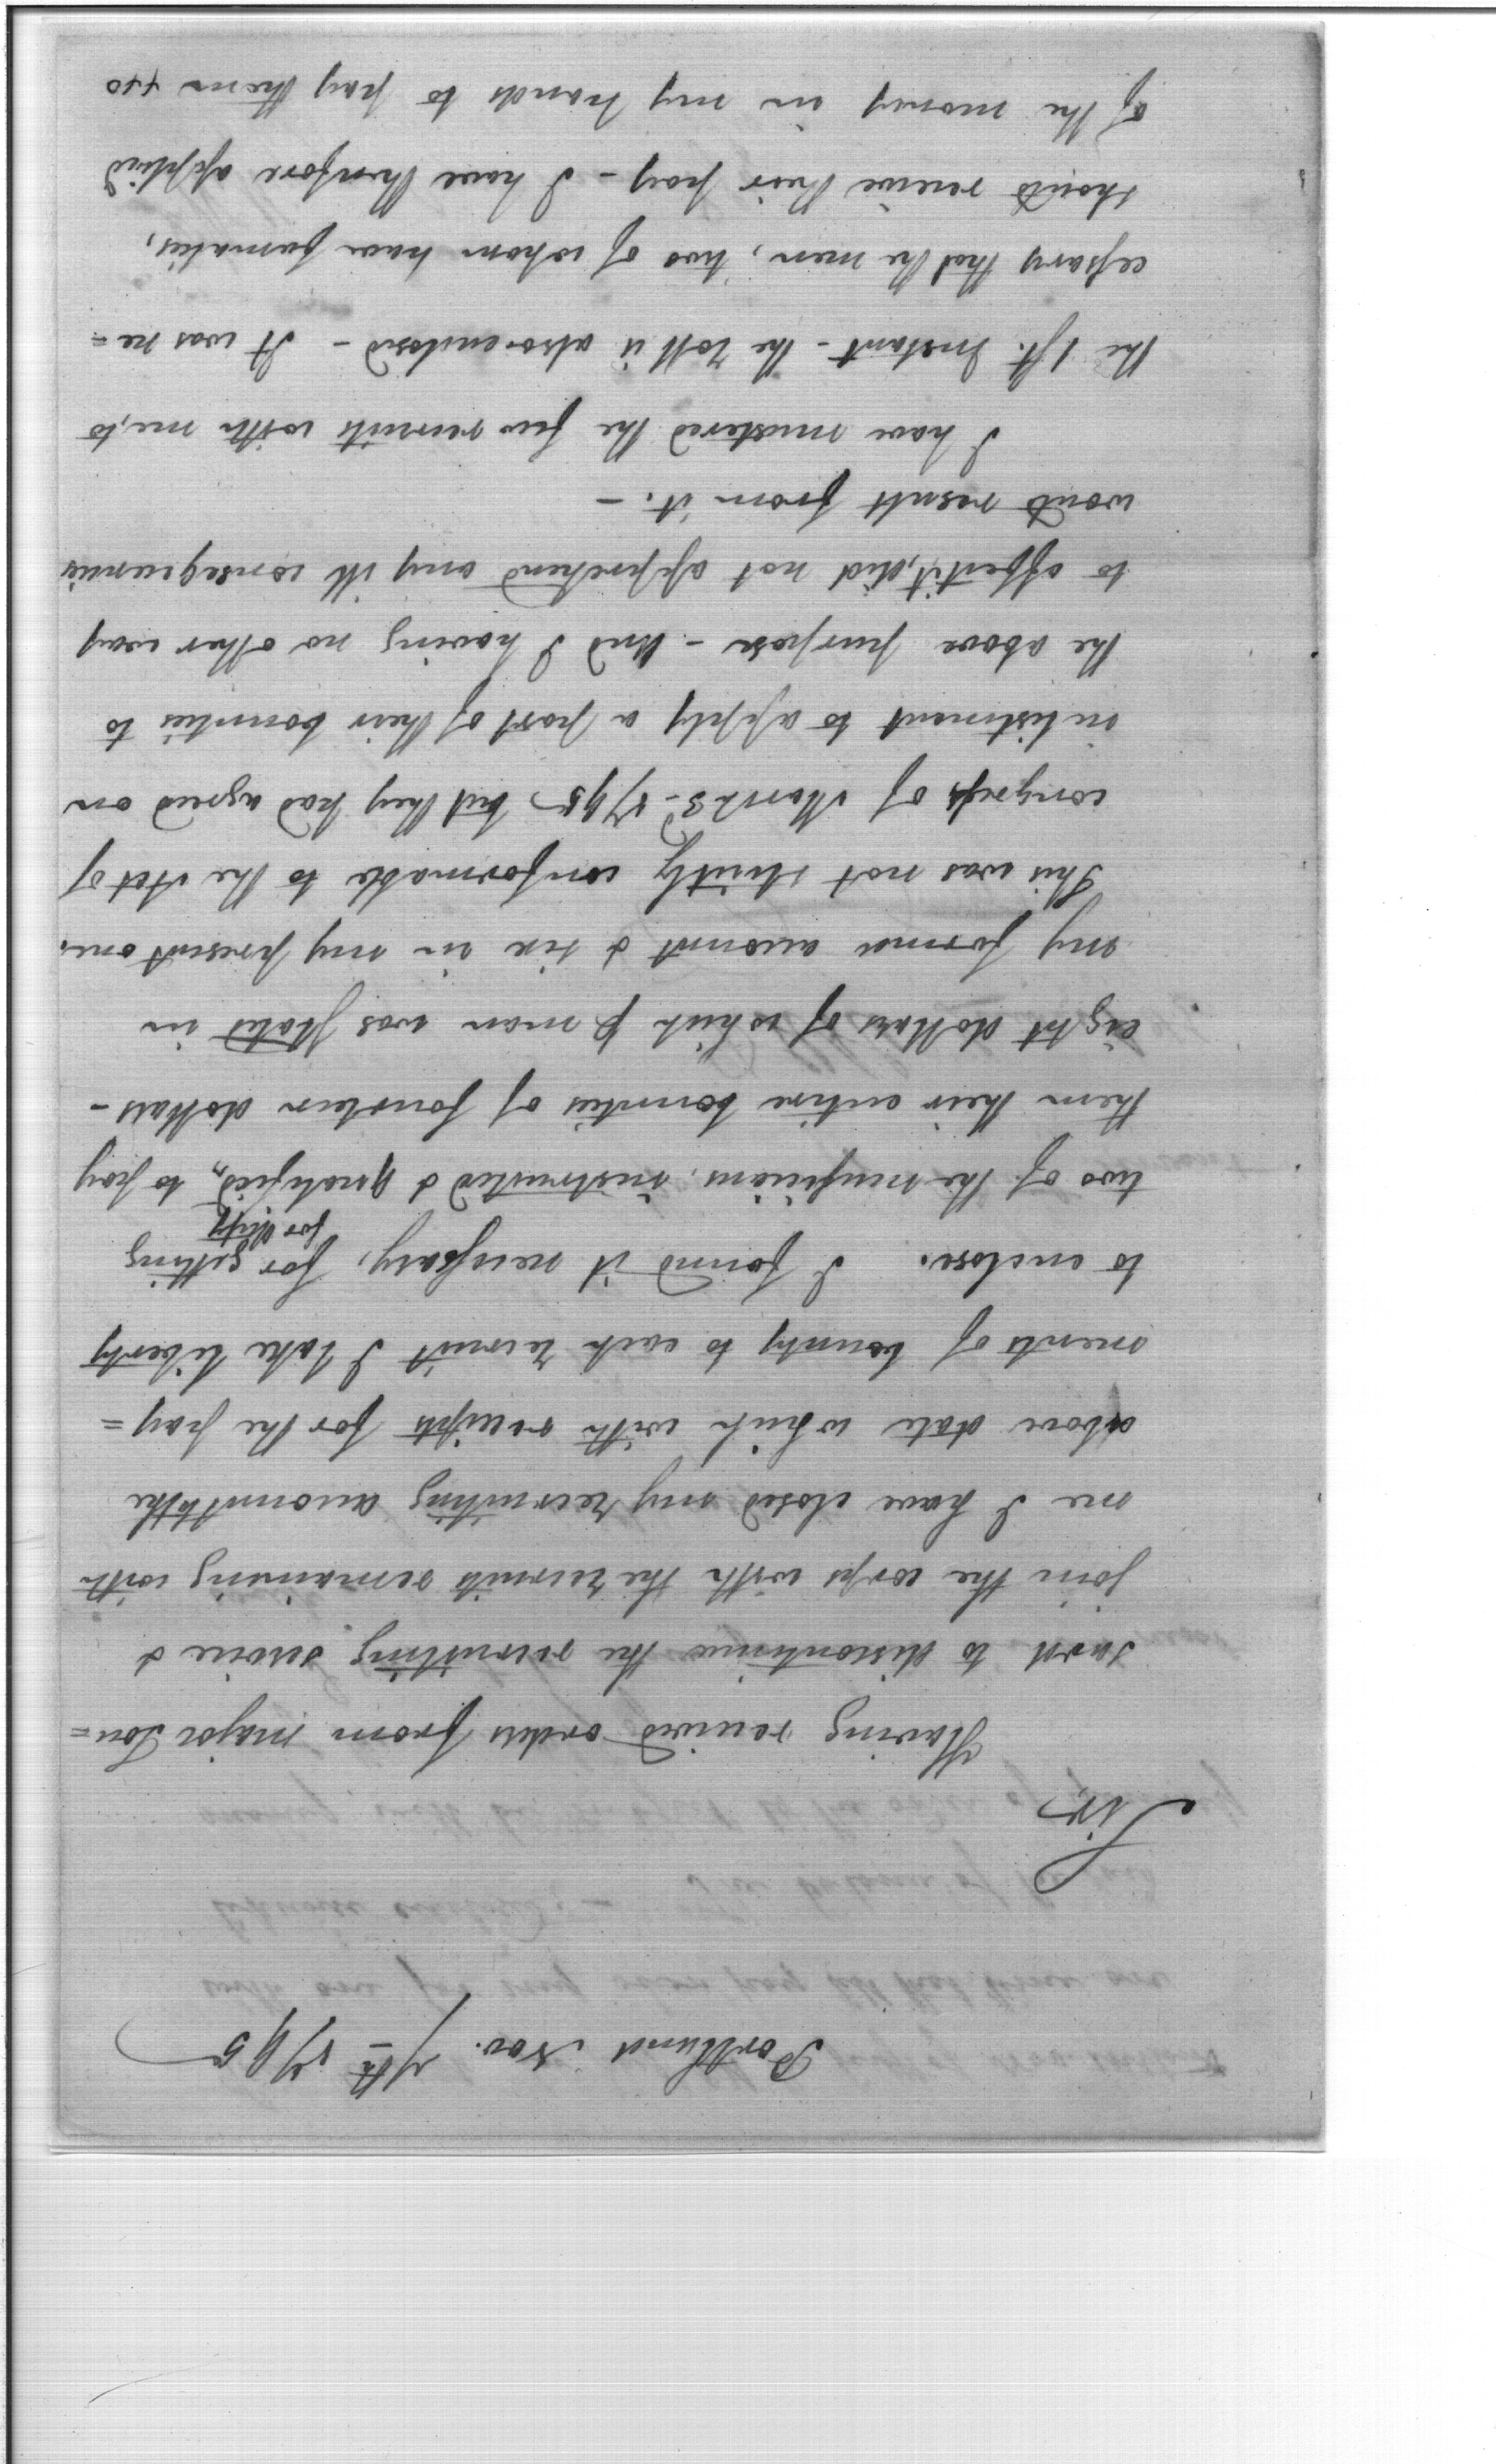 Portland Nov. 7th 1795
Sir,
Having received orders from Major Tou=
sard to discontinue the recruiting service &
join the corps with the recruits remaining with
me I have closed my recruiting account to the
above date which with receipts for the pay=
ments of bounty to each recruit I take liberty
to enclose. I found it necessary, for getting
two of the musicians, instructed & qualified, for duty to pay
them their entire bounties of fourteen dollars -
eight dollars of which p man was stated in
my former account & six in my present one.
This was not strictly conformable to the Act of
congress of March 3d 1795 but they had agreed on
inlistment to apply a part of their bounties to
the above purpose - And I having no other way
to effect it, did not apprehend any ill consequences
would result from it. -
I have mustered the few recruits with me, to
the 1st. Instant - the roll is also enclosed - It was ne=
cessary that the men, two of whom have families,
should receive their pay - I have therefore applied
of the money in my hands to pay them